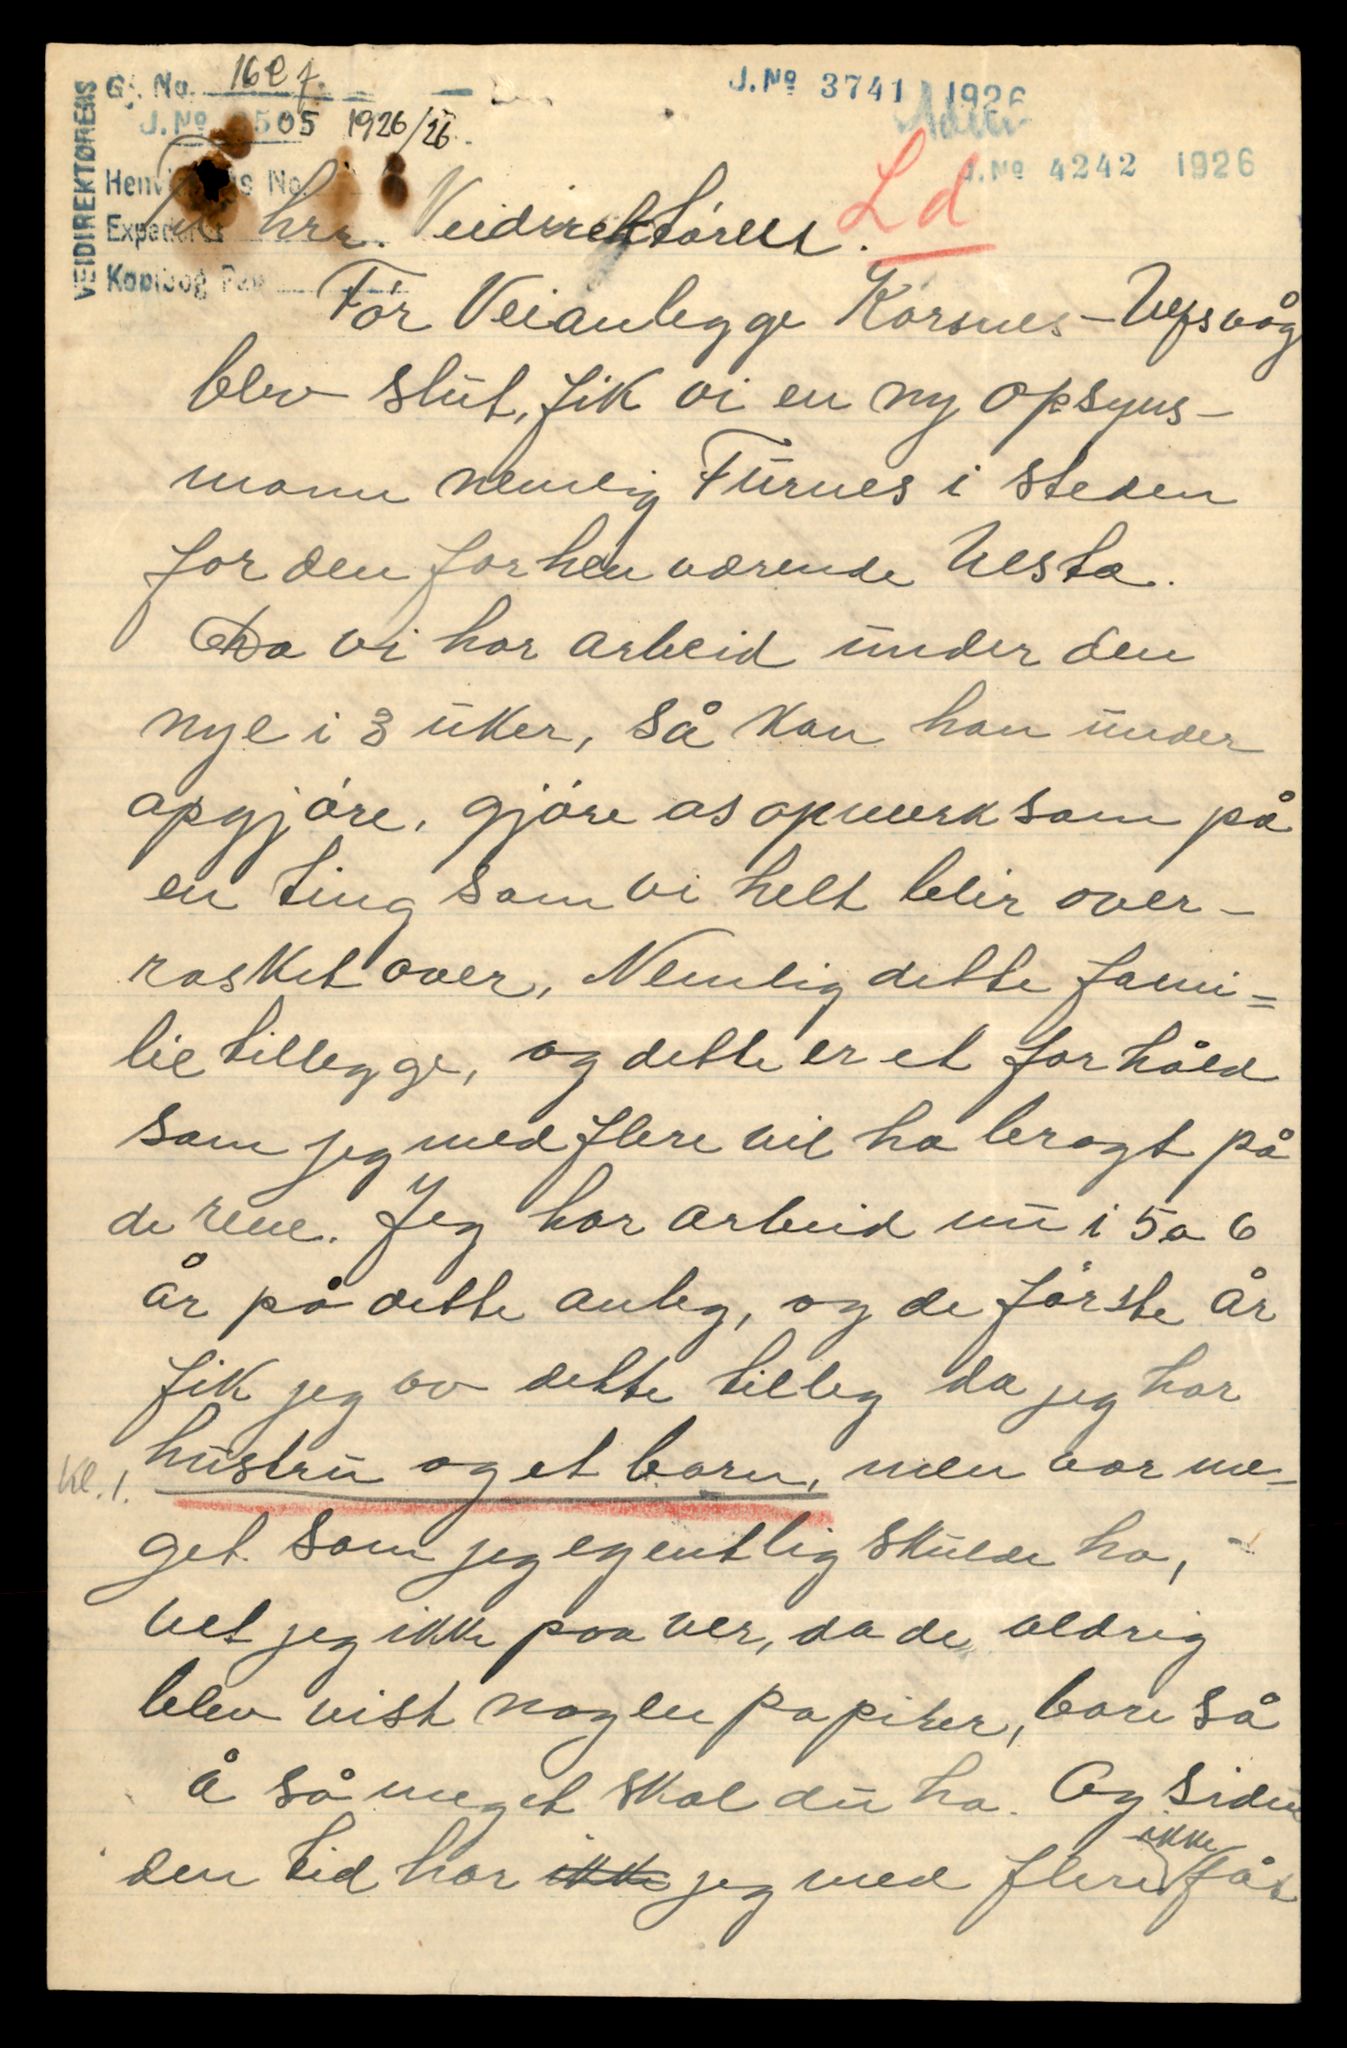 VEIDIREKTØRENS
Gj. No. 16 e 7.
J. No 05 1926/26.
J. No 3741 1926
J. No 4242 1926
Ld
Henvisnings No.
Exped
Kopibog Pag
hrr. Veidirektören.
För Veianlegge Korsnes-Vefsvåg
blev slut, fik vi en ny opsyns-
mann nemlig Furnes i steden
for den forhenværende Vesta.
Da vi har arbeid under den
nye i 3 uker, så kan han under
opgjöre, gjöre os opmerksom på
en ting som vi helt blir over-
rasket over, Nemlig dette fami=
lie tillegge, og dette er et forhåld
som jeg med flere vil ha bragt på
de rene. Jeg har arbeid nu i 5 a 6
år på dette anleg, og de förste år
fik jeg av dette tilleg da jeg har
Kl. 1. hustru og et barn, men vor me-
get som jeg egentlig skulde ha, -
vet jeg ikke paa ver, da de aldrig
blev vist noglen papirer, bare så
å så meget skal du ha. Og siden
den tid har ikke jeg med flere ikke fåt